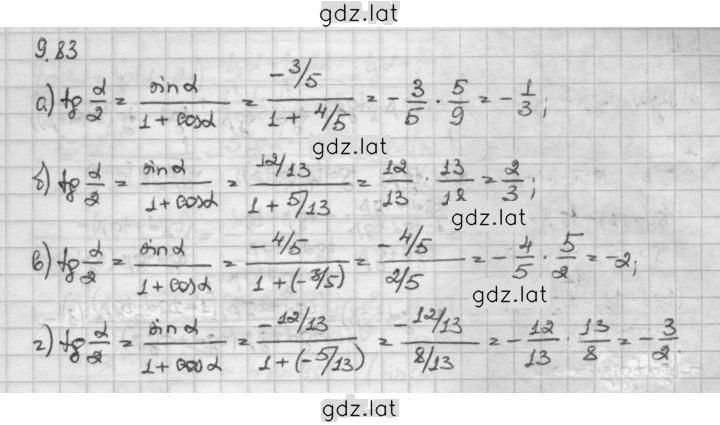 gdz.lat
9.83
а) tg α/2 = sin α / (1 + cos α) = (-3/5) / (1 + 4/5) = - 3/5 · 5/9 = - 1/3;
gdz.lat
б) tg α/2 = sin α / (1 + cos α) = (12/13) / (1 + 5/13) = 12/13 · 13/18 = 2/3;
gdz.lat
в) tg α/2 = sin α / (1 + cos α) = (-4/5) / (1 + (-3/5)) = (-4/5) / (2/5) = - 4/5 · 5/2 = -2;
gdz.lat
г) tg α/2 = sin α / (1 + cos α) = (-12/13) / (1 + (-5/13)) = (-12/13) / (8/13) = - 12/13 · 13/8 = - 3/2.
gdz.lat